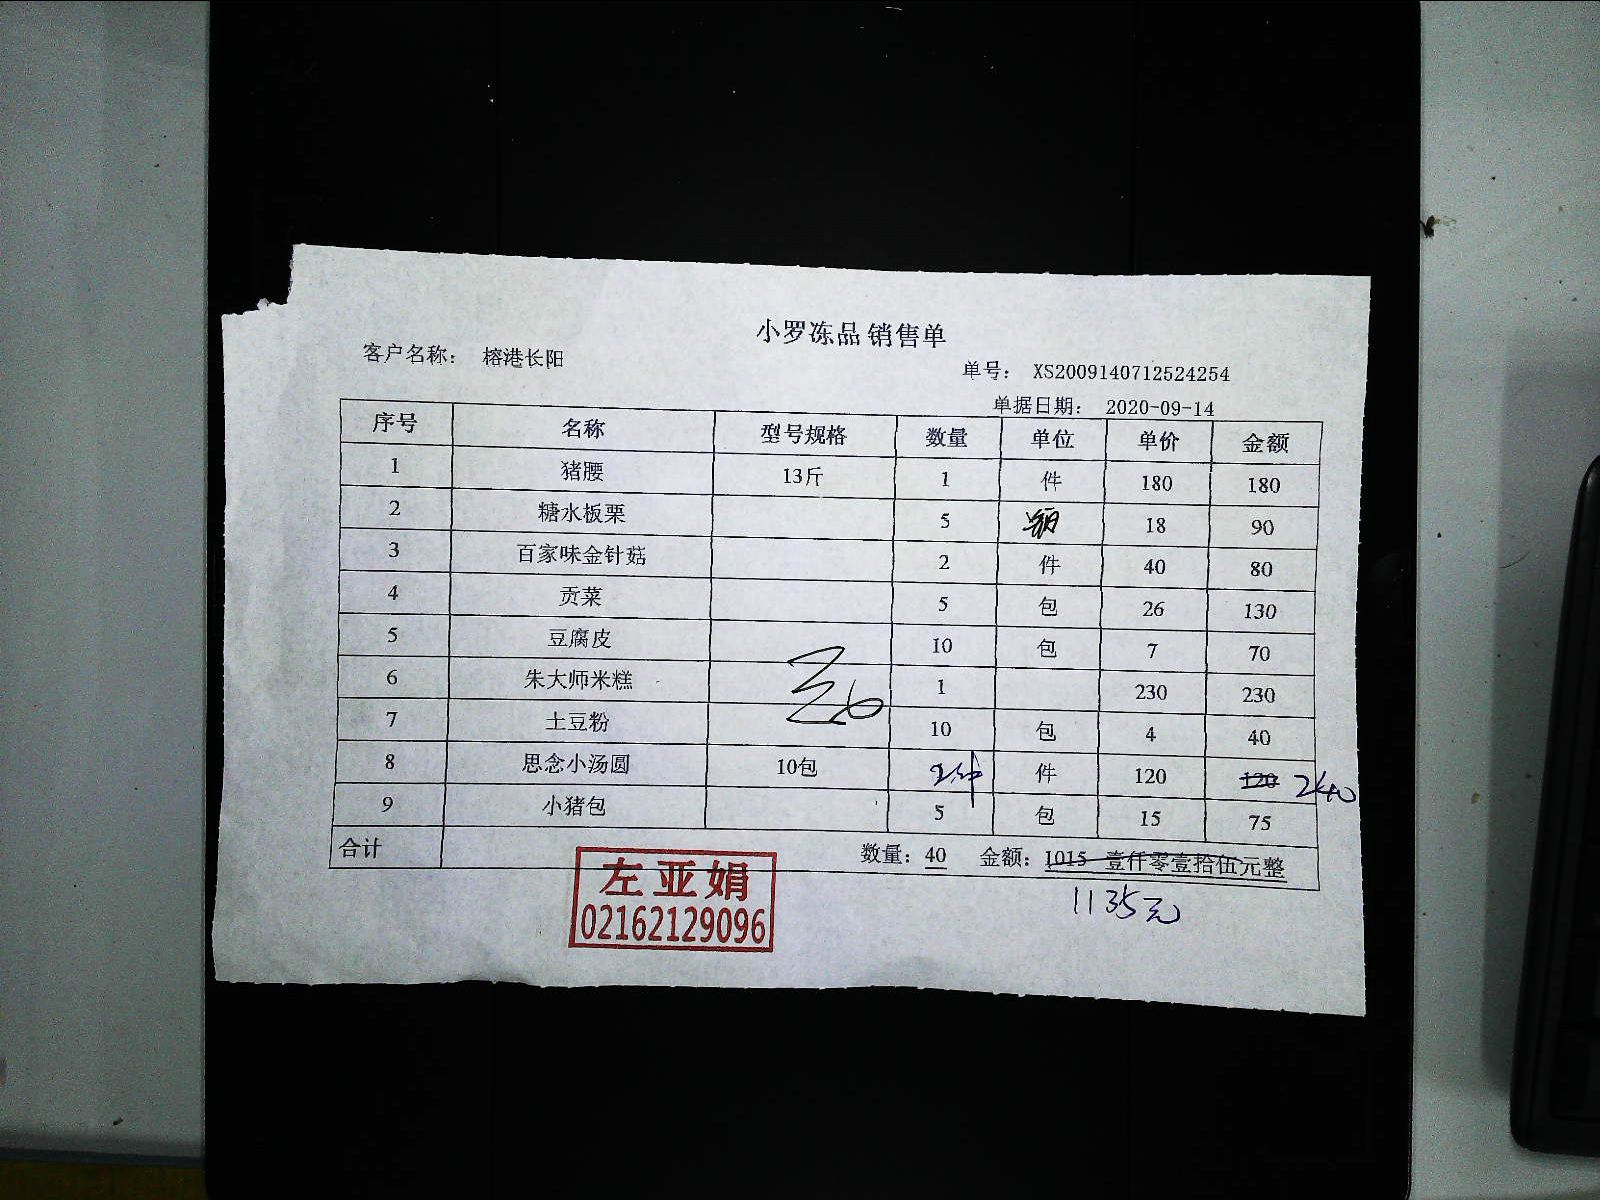 小罗冻品 销售单
客户名称： 榕港长阳
单号： XS2009140712524254
单据日期： 2020-09-14
序号 名称 型号规格 数量 单位 单价 金额
1 猪腰 13斤 1 件 180 180
2 糖水板栗 5 18 90
3 百家味金针菇 2 件 40 80
4 贡菜 5 包 26 130
5 豆腐皮 10 包 7 70
6 朱大师米糕 1 230 230
7 土豆粉 10 包 4 40
8 思念小汤圆 10包 2件 件 120 120 240
9 小猪包 5 包 15 75
合计 数量：40 金额：1015 壹仟零壹拾伍元整
1135元
左亚娟
02162129096